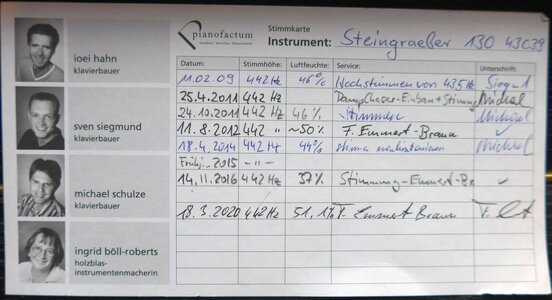 pianofactum
Stimmkarte
Instrument: Steingraeber 130 43039
joei hahn
klavierbauer
sven siegmund
klavierbauer
michael schulze
klavierbauer
ingrid böll-roberts
holzblas-
instrumentenmacherin
Datum: Stimmhöhe: Luftfeuchte: Service: Unterschrift:
11.02.09 442 Hz 46% Hochstimmen von 435 Hz
25.4.2011 442 Hz Dampfchaser-Einbau + Stimmung Michael
24.10.2011 442 Hz 46% Stimmen Michael
11.8.2012 442 " ~50% F. Emmert-Braun ✓
18.4.2014 442 Hz 44% Michael
Frühj. 2015 -"-
14.11.2016 442 Hz 37% Stimmung-Emmert-Br ✓
18.3.2020 442 Hz 51,1% F. Emmert Braun